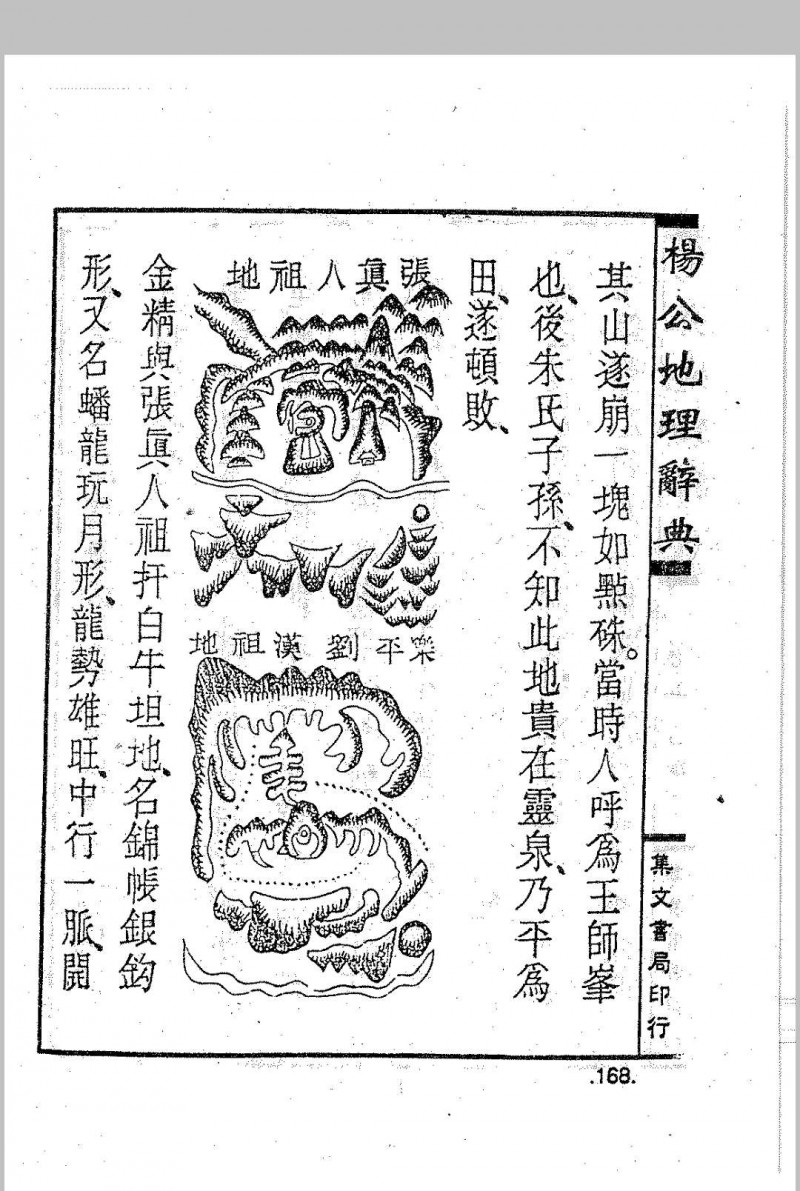 楊公地理辭典
集文書局印行
其山遂崩一塊如點硃。當時人呼為王師峯
也、後朱氏子孫、不知此地貴在靈泉、乃平為
田、遂頓敗、
張眞人祖地
樂平劉漢祖地
金精與張眞人祖扦白牛坦地、名錦帳銀鈎
形、又名蟠龍玩月形、龍勢雄旺、中行一脈、開
.168.